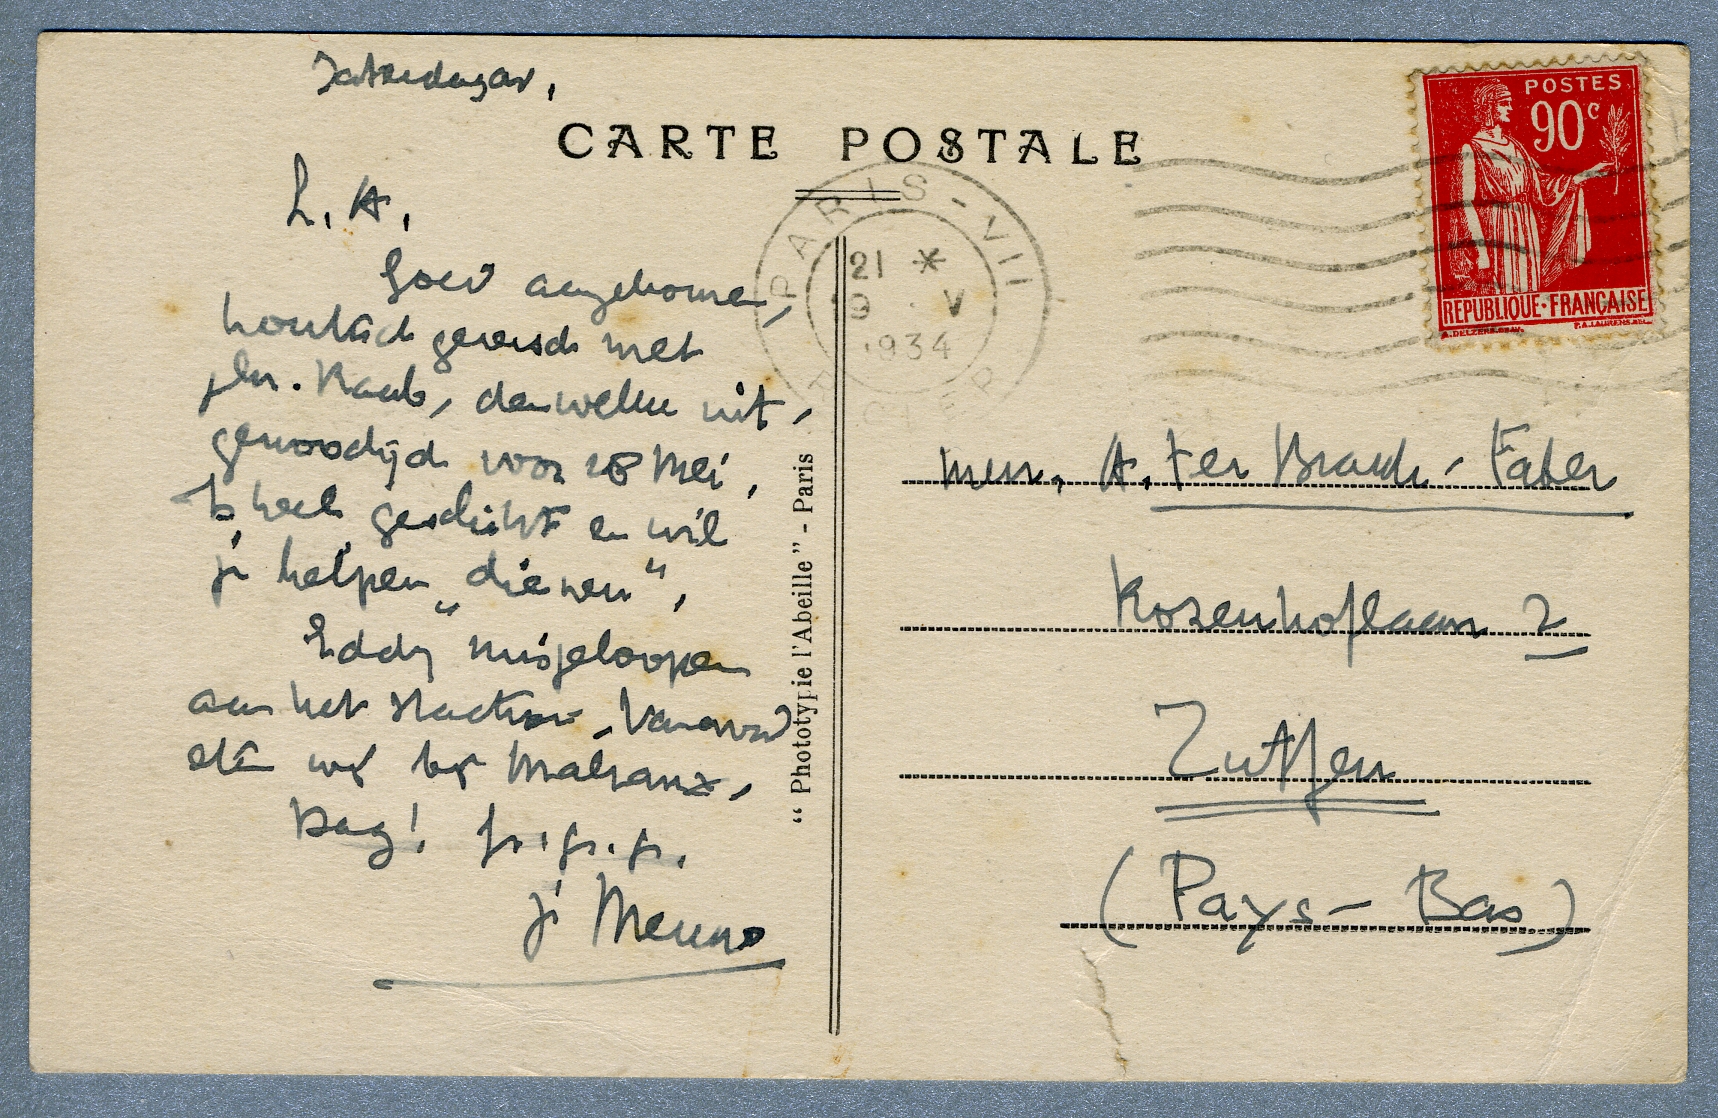 Zaterdagav,
CARTE POSTALE
L. A,
Goed aangekomen,
gereisd met
jhr. Raab, denwelke uit-
genoodigd voor 28 Mei,
geschikt en wil
je helpen „dienen".
Eddy misgeloopen
aan het station. Vanavond
eten wij bij Malraux,
Dag!
je Menno
POSTES
90c
REPUBLIQUE·FRANÇAISE
PARIS-VII
21 *
9 · V
1934
"Phototypie l'Abeille" - Paris
Mevr. A. ter Braak-Faber
Rozenhoflaan 2
Zutfen
(Pays-Bas)